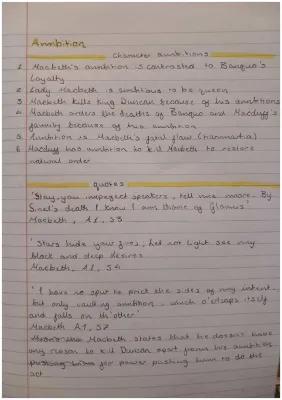 Ambition
character ambitions
1. Macbeth's ambition is contrasted to Banquo's
loyalty
2. Lady Macbeth is ambitious to be queen
3. Macbeth kills King Duncan because of his ambitions
4. Macbeth orders the deaths of Banquo and Macduff's
family because of his ambition
5. Ambition is Macbeth's fatal flaw (hamartia)
6. Macduff has ambition to kill Macbeth to restore
natural order
quotes
'Stay, you imperfect speakers, tell me more. By
Sinel's death I know I am thane of Glamis'
Macbeth, A1, S3
'Stars hide your fires, let not light see my
black and deep desires
Macbeth, A1, S4
'I have no spur to prick the sides of my intent,
but only vaulting ambition, which o'erleaps itself
and falls on th'other'
Macbeth A1, S7
Macbeth states that he doesn't have
any reason to kill Duncan apart from his ambition
for power pushing him to do the
act